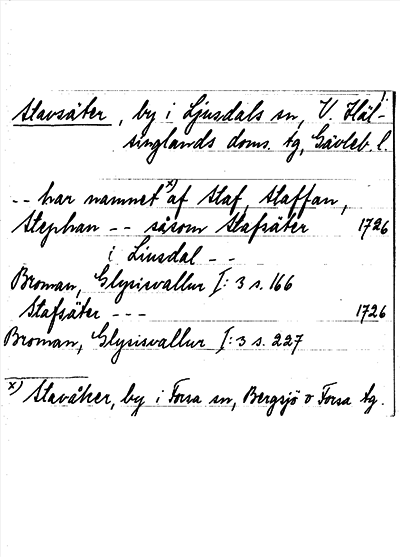 Stavsäter, by i Ljusdals sn, V. Häl-
singlands doms. tg, Gävleb. l.
-- har namnet x) af Staf, Staffan,
Stephan -- såsom Stafsäter 1726
i Liusdal --
Broman, Glysisvallur I:3 s. 166
Stafsäter --- 1726
Broman, Glysisvallur I:3 s. 227
x) Stavåker, by i Forsa sn, Bergsjö o Forsa tg.